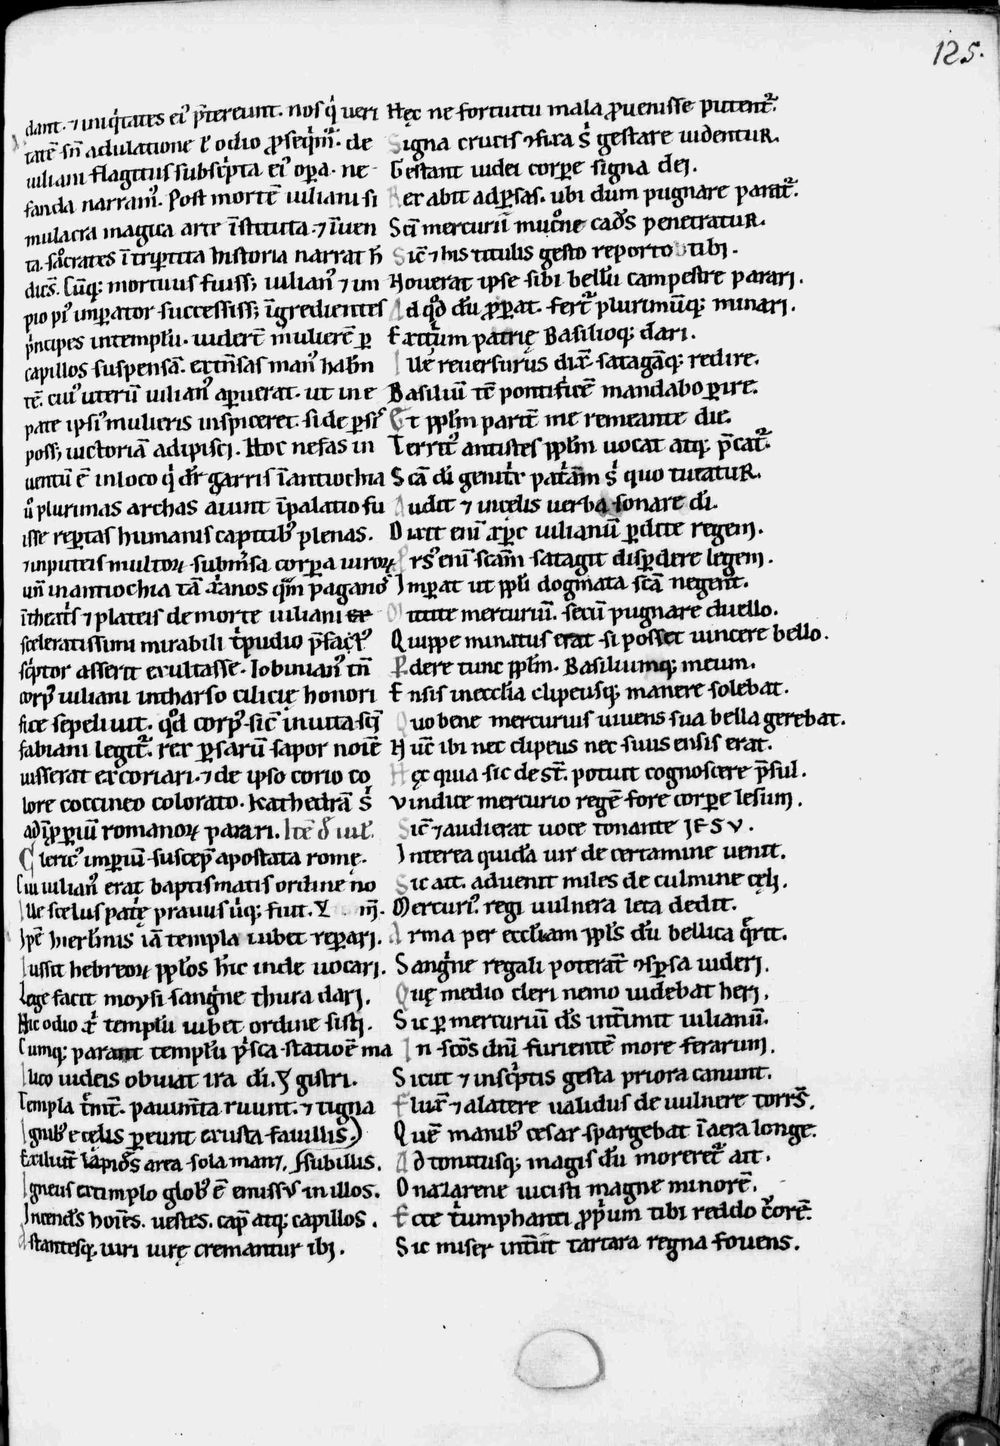 125.
dant. ⁊ iniq̇tates ei᷒ p̄tereunt. nos q̇ ueri
tatē sn̄ adulatione ł odio ꝓseq̇mr̄. de
iuliani flagitiis subsc̄pta ei᷒ oꝑa. ne-
fanda narram᷒. Post mortē iuliani si
mulacra magica arte īstituta. ⁊ īuen
ta. socrates ī tripertita historia narrat h̄
dicēs. Cūq; mortuus fuiss; iulian᷒ ⁊ im
pio pi᷒ imꝑator successiss; īgredientes
p̄ncipes intemplū. uiderēt mulierē ꝑ
capillos suspensā. extēnsas man᷒ habn̄
tē. cui᷒ uterū iulian᷒ aꝑuerat. ut in e
pate ipsi᷒ mulieris inspiceret. si de ꝑsis
poss; uictoriā adipisci. Hoc nefas in
uentū ē in loco q̇ dr̄ garris ī antiochia
ů plurimas archas aiunt ī palatio fu
isse reꝑtas humanis capitib᷒ plenas.
⁊ in puteis multoꝝ submsa corꝑa uiroꝝ
un̄ in antiochia tā xr̄anos qm̄ pagano᷒
ī theatis ⁊ plateis de morte iuliani
sceleratissimi mirabili tripudio p̄fat᷒
scptor asserit exultasse. Iobinian᷒ tn̄
corp᷒ iuliani in tharso cilicię honori
fice sepeliuit. qd̄ corp᷒ sic̄ in uita scī
fabiani legit᷑. rex ꝑsarū sapor noīe
iusserat excoriari. ⁊ de ipso corio co
lore coccineo colorato. kathedrā s᷒
ad īꝑium romanoꝝ parari. Itē d iul.
Cleric᷒ imꝑiū suscep̄ apostata romę.
Cui iulian᷒ erat baptismatis ordine no
Ille scelus patę prauus ūq; fuit.
Ipē hierlīmis iā templa iubet reꝑarj.
Iussit hebreoꝝ ppłos hīc inde uocarj.
Lege facit moysi sangne thura darj.
Hic odio xr̄ templū iubet ordine sistj.
Cumq; parant templū psca statioē ma
Iuco iudeis obuiat ira dī. ⁊ gistri.
Templa tmīt. pauimta ruunt. ⁊ tigna
Ignib᷒ e celis ꝑeunt exusta fauillis.
Exiliunt lapides area sola man. S subillis.
Igneus extimplo glob᷒ ē emissus in illos.
Incend͛s hoīes. uestes. cap̄ atq; capillos.
Astantesq, uiri uirę cremantur ibj.
Hęc ne fortuitu mala ꝓuenisse putent᷑.
Signa crucis ⁊fixa s᷒ gestare uidentuR.
Gestant iudei corꝑe signa dej.
Rex abit ad ꝑsas. ubi dum pugnare parat᷑.
Scī mercurii mucrone cad͛s penetratuR.
Sic̄ ⁊ his titulis gesto reporto tibj.
Nouerat ipse sibi bellū campestre pararj.
Ad qd̄ dū ꝓꝑat. fert᷑ plurimūq; minarj.
Exitūm patrię Basilioq; dari.
Ille reuersurus dix̄. satagāq; redire.
Basiliū tē pontificē mandabo ꝑire.
Et ppłm parit̄ me remeante die.
Territ᷒ antistes ppłm uocat atq; p̄cat᷑.
Scā dī genitr̄ patrām s᷒ quo tutatuR.
Audit ⁊ in celis uerba sonare dī.
Dixit enī xp̄c iulianū ꝑdite regem.
Prs᷒ enī scām satagit disꝑdere legem.
Imꝑat ut ppłi dogmata scā negent.
Mittite mercuriū. secū pugnare duello.
Quippe minatus erat si posset uincere bello.
Pdere tunc ppłm. Basiliumq; meum.
Ensis in ecclīa clipeusq; manere solebat.
Quo bene mercurius uiuens sua bella gerebat.
Nūc ibi nec clipeus nec suus ensis erat.
Hęc quia sic desst. potuit cognoscere p̄sul.
Vindice mercurio regē fore corꝑe lesum.
Sic̄ ⁊ audierat uoce tonante IESV.
Interea quidā uir de certamine uenit.
Sic ait. aduenit miles de culmine cęlj.
Mercuri᷒ regi uulnera leta dedit.
Arma per eccłiam ppłs dū bellica q̄rit.
Sangne regali poterat ⁊sꝑsa uiderj.
Quę medio cleri nemo uidebat herj.
Sic ꝑ mercuriū d͛s intimit iulianū.
In scōs dnī furientē more ferarum.
Sicut ⁊ in scptis gesta priora canunt.
Flux̄ ⁊ a latere ualidus de uulnere torrēs.
Quē manib᷒ cesar spargebat ī aera longe.
Ad tonitusq; magis dū moreret᷑ ait.
O nazarene uicisti magne minorē.
Ecce tumphanti ꝓpum tibi reddo cruorē.
Sic miser intūit tartara regna fouens.